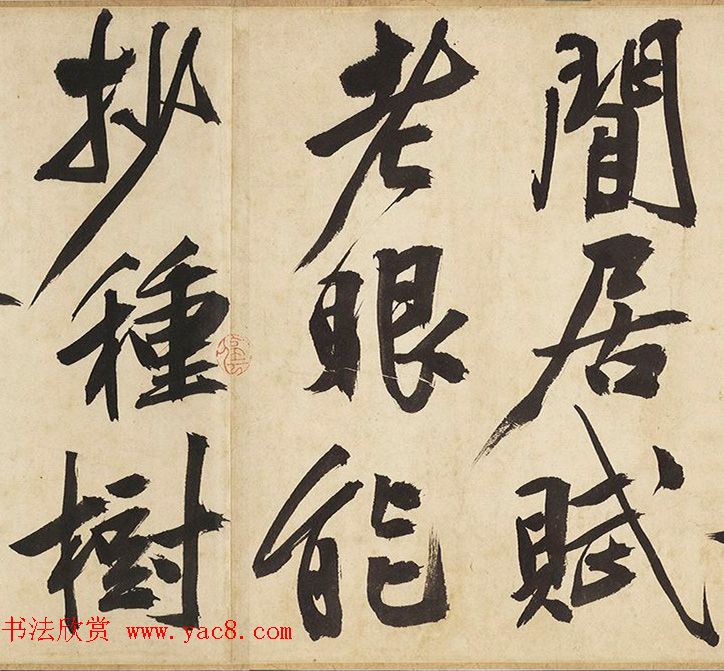 閒居賦
老眼能
抄種樹
书法欣赏 www.yac8.com